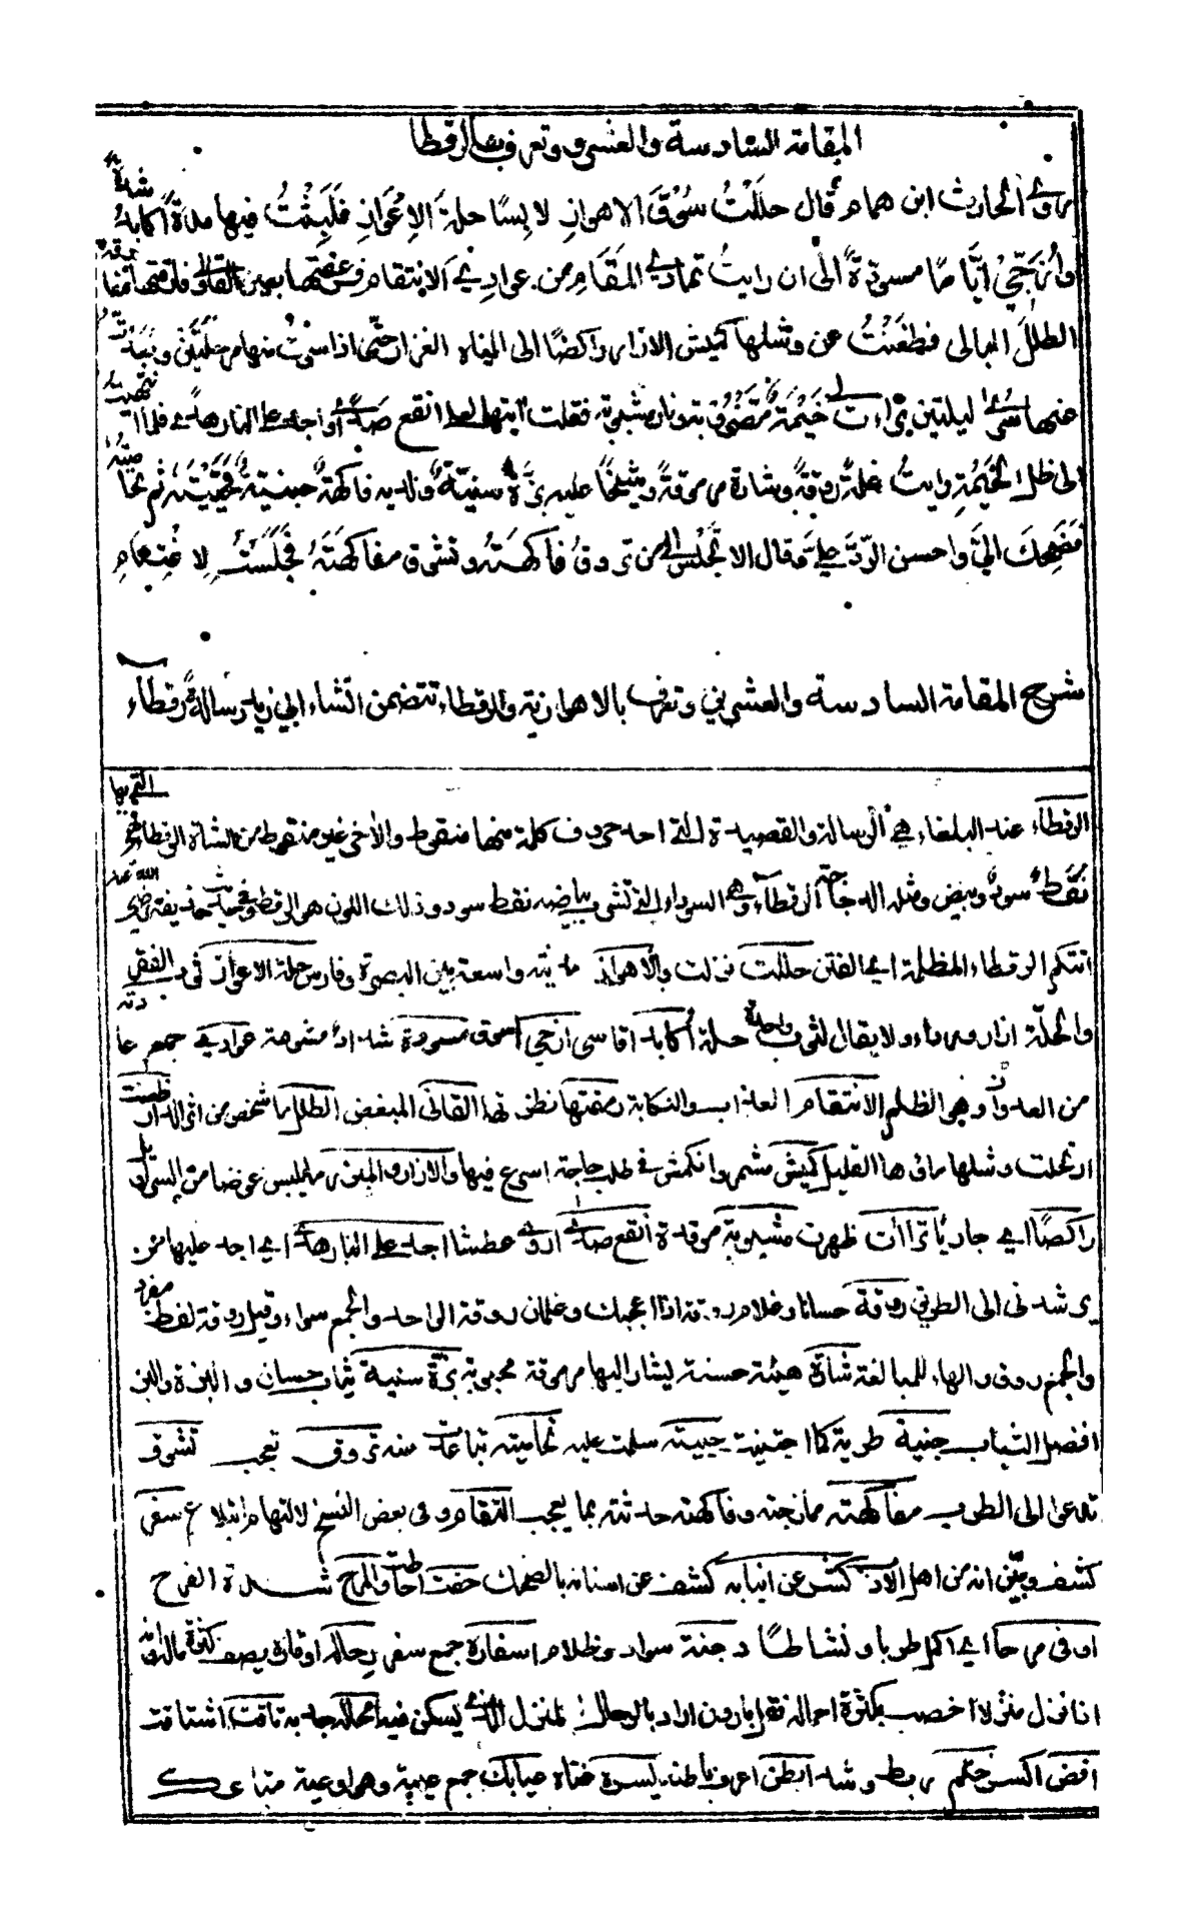 المقامة السادسة والعشرون وتعرف بالرقطا
روى الحارث ابن همام قال حللت سُوقَ الاهوازِ لابسًا حلةَ الاِعْوازِ فلَبِثْتُ فيها مدةً اكابدُ شدةً
وأُزَجّي ايّامًا مسودّةً الى ان رايتُ تماديَ المَقَامِ من عوادي الانتقام فرمقتها بعين القالي وفارقتها مفارقة
الطللِ البالي فظعَنْتُ عن وشلها كميش الازار راكضًا الى المياه الغزار حتّى اذا سرتُ منها مرحلتين وبَعُدتُ
عنها سُرى ليلتين تراءت لي خَيْمَة مَضْروبة ونار مشبوبة فقلت آتيهما لعلي انقع صدًى او اجد على النار هدًى فلما انتهيت
الى ظل الخَيْمَةِ رايتُ غلمةً رُوقةً وشارة مرموقةً وشَيْخًا عليه بزّة سنيّة ولديه فاكهةٌ جنيةٌ فحيّيْتُه ثم تحاميته
فضحك اليَّ واحسن الردَّ عليَّ وقال الا تجلس الى من تروقُ فاكهته وتشوق مفاكهتَهُ فجلَسْتُ لاغتنام
شرح المقامة السادسة والعشرين وتعرف بالاهوازية والرقطاء تتضمن انشاء ابي زيد رسالةً رقطاء
الرقطاء عند البلغاء هي الرسالة والقصيدة التي احد حروف كلمة منها منقوط والأخر غير منقوط من الشاة الرقطاء التي بها
نُقَطٌ سودٌ وبيض ومثله الدجاجة الرقطاء وهي السوداء التي تشوب بياضه نقط سود وذلك اللون هو الرقط وفي حديث حذيفة رضي الله عنه
اتتكم الرقطاء المظلمة اي الفتن حللت نزلت والاهواز مدينة واسعة بين البصرة وفارس حلة الاعواز ثوب الفقر
والحلّة ازار ورداء ولا يقال لثوب واحد حلة أكابد اقاسي ازجي اسوق مسودة شدائد مشومة عوادي جمع عادية
من العدوان وهي الظلم الانتقام العذاب والنكاية رمقتها نظرتها القالي المبغض الطلل ما شخص من اثر الدار ظعنت
ارتحلت وشلها ماؤها القليل كميش مشمر وانكمش في طلب حاجة اسرع فيها والازار والمئزر ما يلبس عوضا من السراويل
راكضًا اي جاريا تراأت ظهرت مشبوبة موقدة أنقع صدى اروي عطشا اجد على النار هدى اي اجد عليها من
يرشدني الى الطريق روقة حسانا وغلام روقة اذا اعجبك وغلمان روقة الواحد والجمع سواء وقيل روقة لفظ مفرد
والجمع روق والهاء للمبالغة شارة هيئة حسنة يشار اليها مرموقة محبوبة بزّة سنية ثياب حسان والبزة والبز
افضل الثياب جنية طرية كما اجتنيت حييته سلمت عليه تحاميته تباعدت منه تروق تعجب تشوق
تدعو الى الطرب مفاكهته ممازحته وفاكهته حدثته بما يعجب التقام وفي بعض النسخ لالتهام ابتلاع سفر
كشف وبيّن انه من اهل الادب كشر عن انيابه كشف عن اسنانه بالضحك حفت احاطت والمرح شدة الفرح
اوفى مرحا اي اكمل طربا ونشاطًا دجنة سواد وظلام اسفاره جمع سفر رحاله اوقاره يصف كثرة ماله وانه
اذا نزل منزلا اخصب بكثرة احماله فقرا يارون اراد بالرحال المنزل الذي يسكن فيه امحاله جدبه تاقت اشتاقت
افض اكسر ختم ربط وشد ابطن اعرف باطنه ليسره غناه عيابك جمع عيبة وهي اوعية متاعك